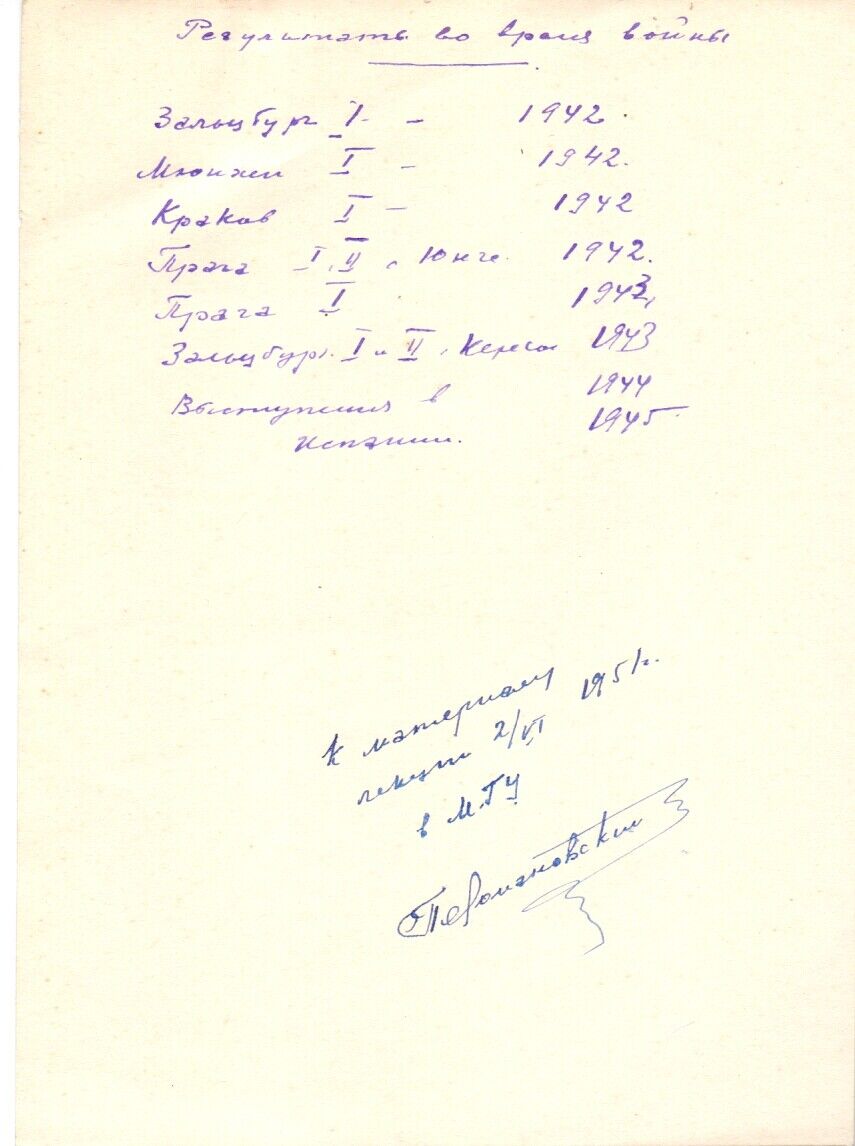 Результаты во время войны
Зальцбург I - 1942.
Мюнхен I - 1942.
Краков I - 1942
Прага I, II с Юнге 1942.
Прага I 1943.
Зальцбург. I и II с Кересом 1943
Выступления в 1944
Испании. 1945.
К материалу
лекции 2/VI 1951г.
в М.ГУ
Романовский